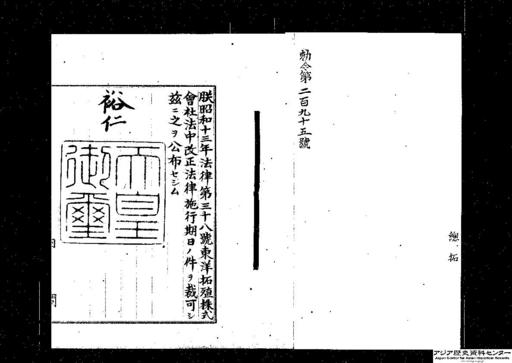 勅令第二百九十五號
總、拓
朕昭和十三年法律第三十八號東洋拓殖株式
會社法中改正法律施行期日ノ件ヲ裁可シ
茲ニ之ヲ公布セシム
裕仁
天皇
御璽
内 閣
アジア歴史資料センター
Japan Center for Asian Historical Records